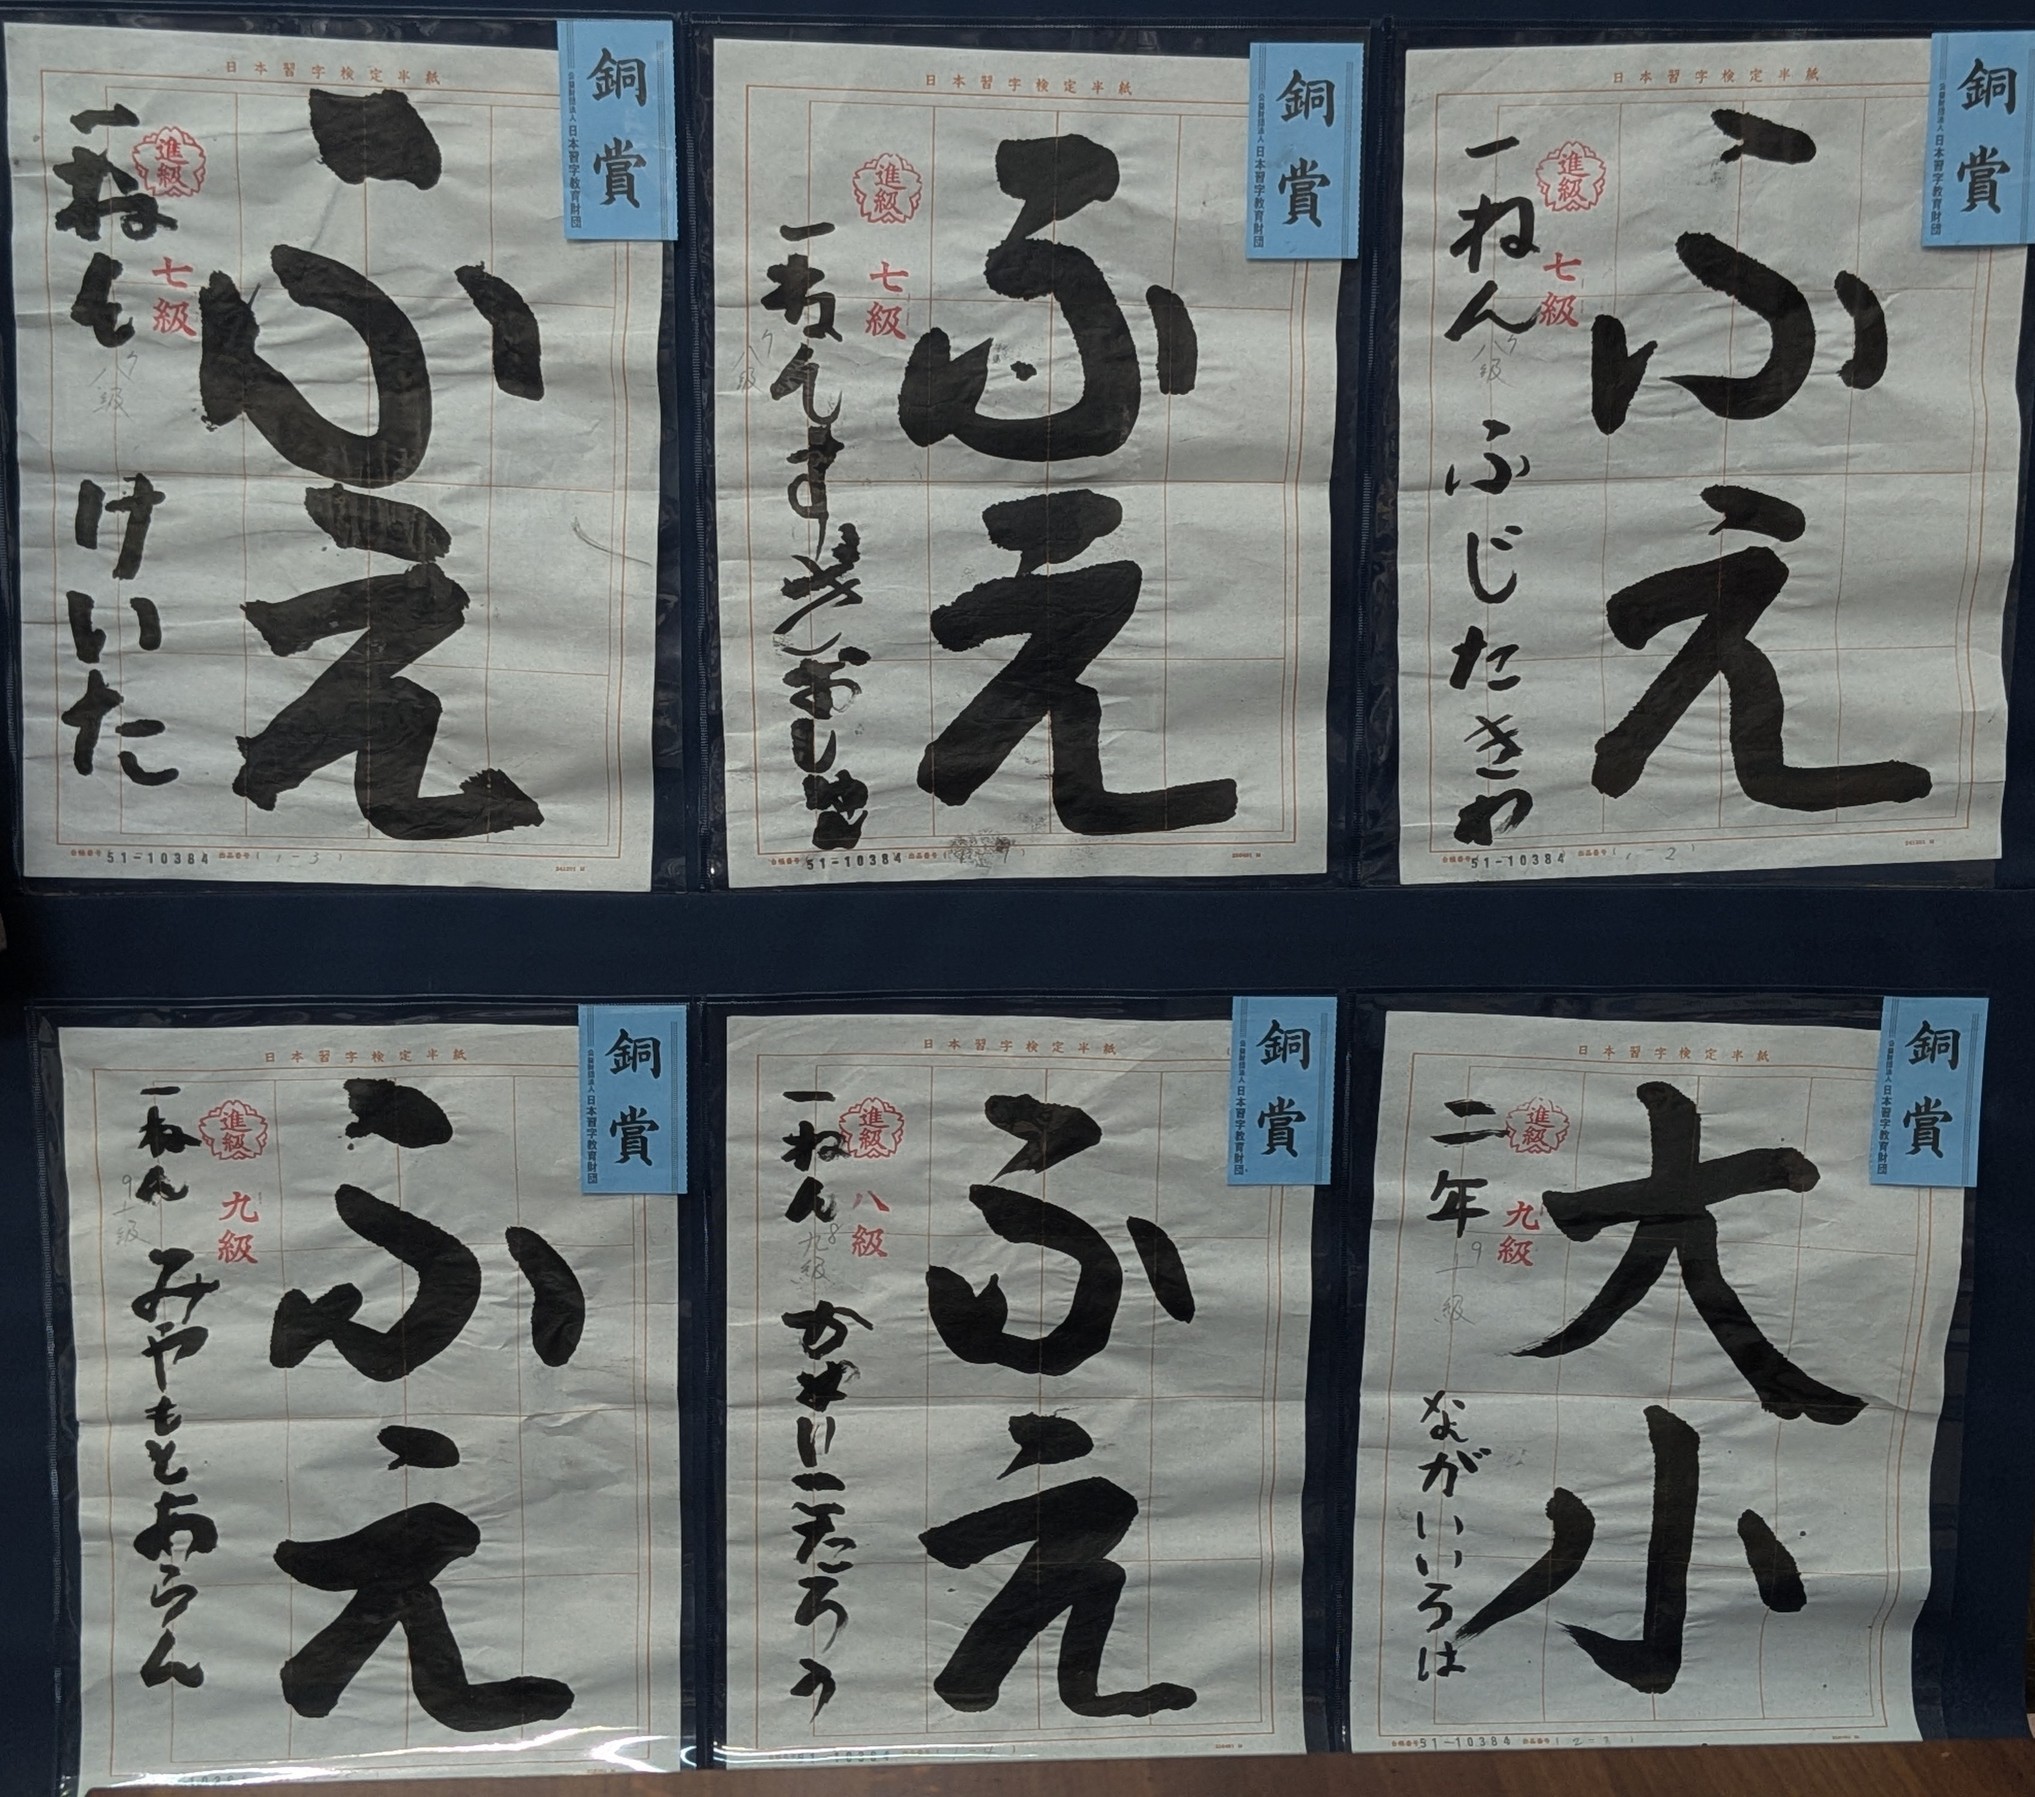 日本習字検定半紙
銅賞
公益財団法人 日本習字教育財団
ふえ
進級
七級
八級
一ねん
けいた
51-10384
(1-3)
日本習字検定半紙
銅賞
公益財団法人 日本習字教育財団
ふえ
進級
七級
八級
一ねん
51-10384
日本習字検定半紙
銅賞
公益財団法人 日本習字教育財団
ふえ
進級
七級
八級
一ねん ふじたさわ
51-10384
(1-2)
日本習字検定半紙
銅賞
公益財団法人 日本習字教育財団
ふえ
進級
九級
9
十級
一ねん みやもとあらん
日本習字検定半紙
銅賞
公益財団法人 日本習字教育財団
ふえ
進級
八級
8
九級
一ねん
日本習字検定半紙
銅賞
公益財団法人 日本習字教育財団
大小
進級
九級
9
十級
二年 ながいいろは
51-10384
(2-3)